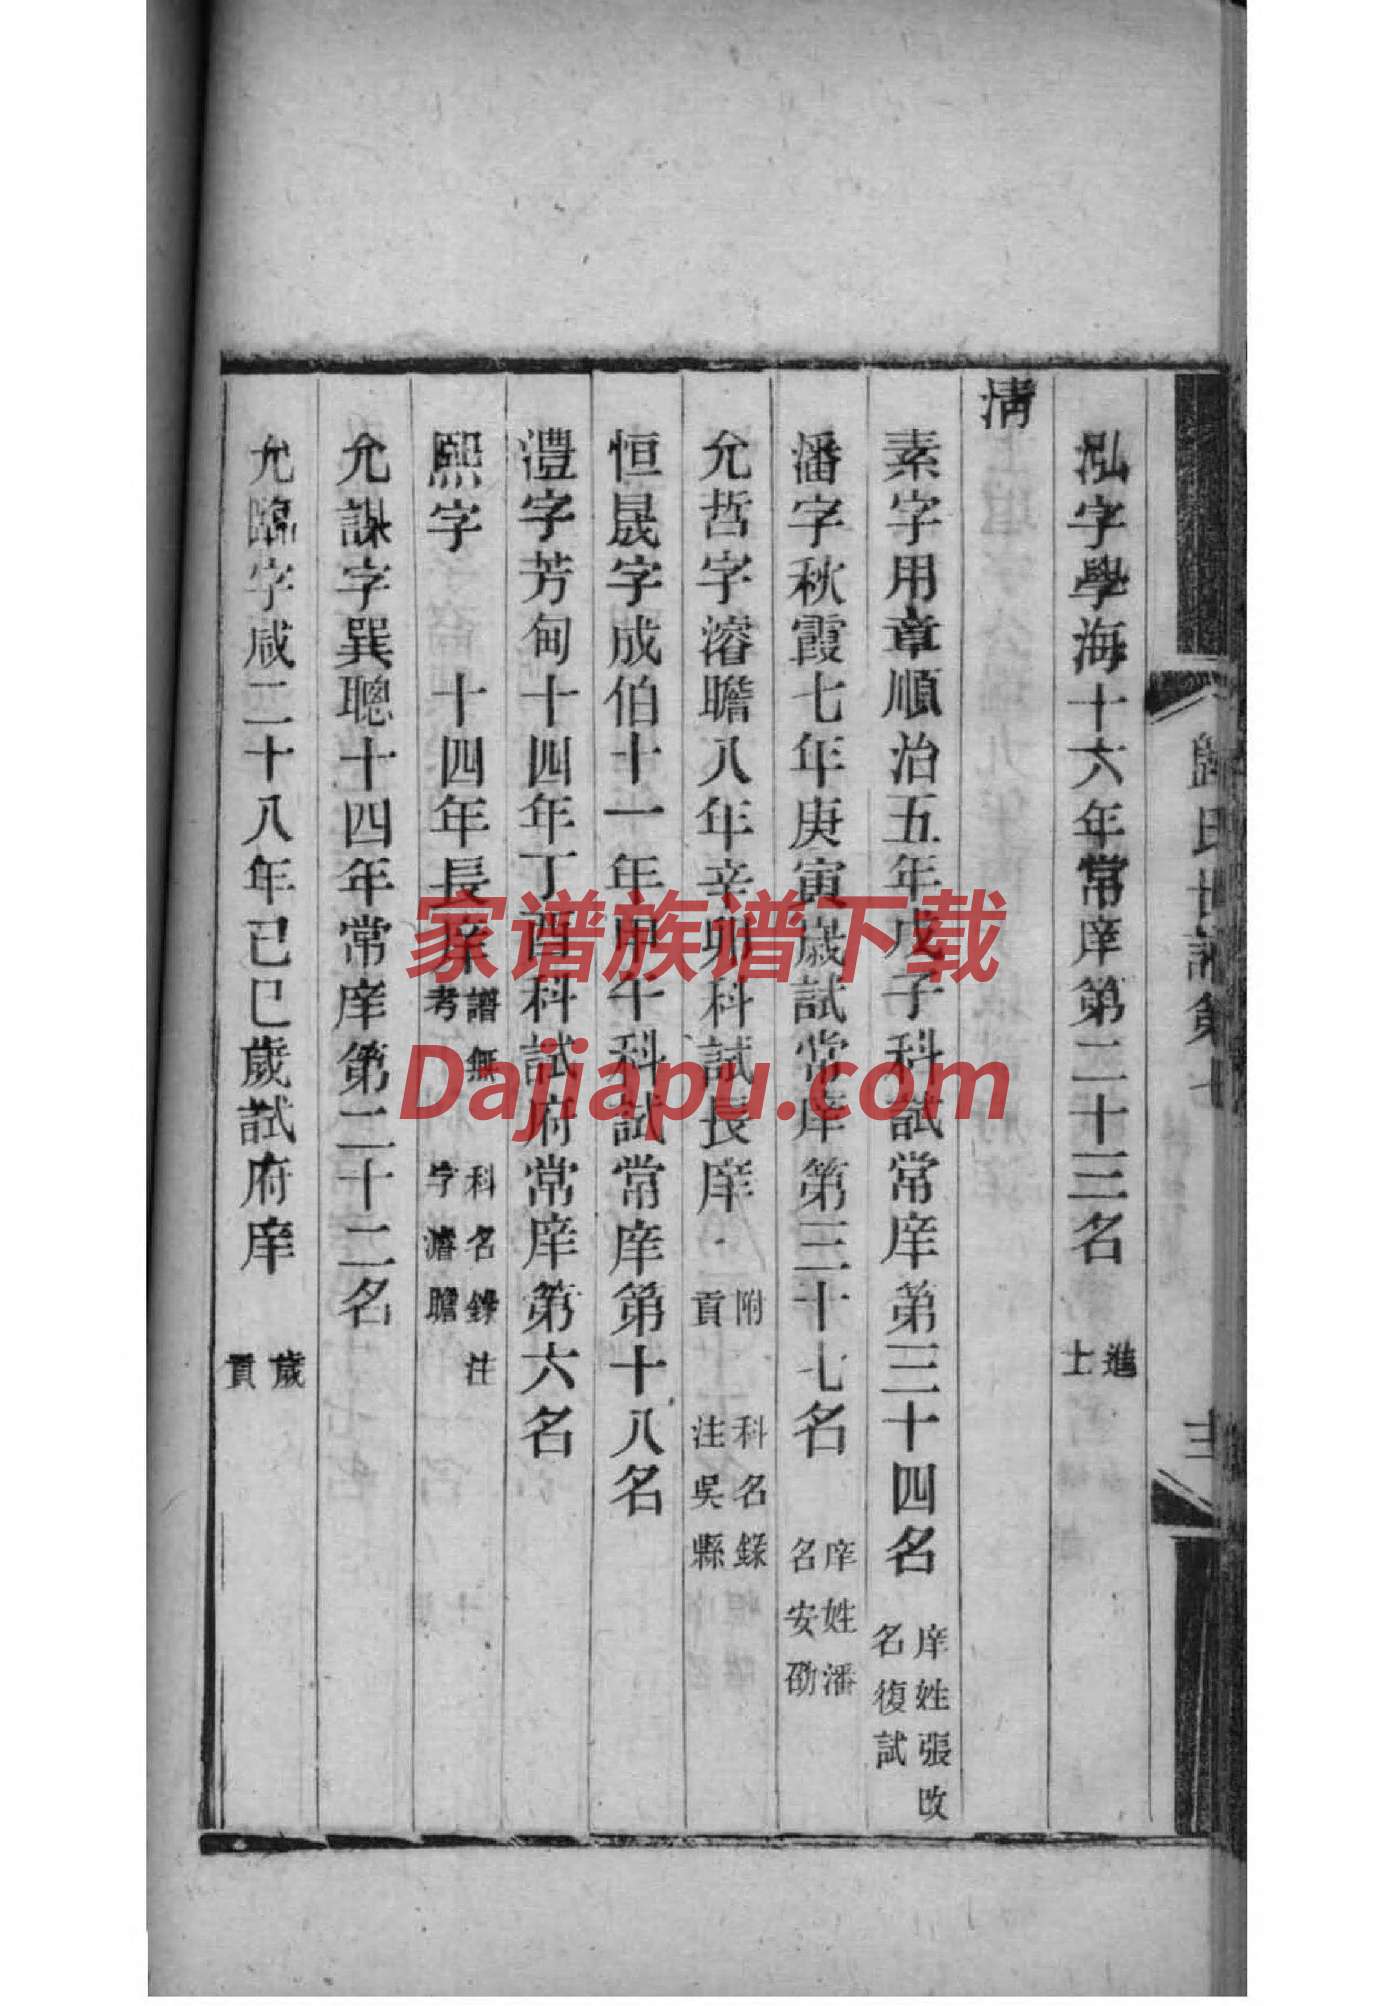 歸氏世譜第七
泓字學海十六年常庠第二十三名 進士
清
素字用章順治五年戊子科試常庠第三十四名 庠姓張改名復試
潘字秋霞七年庚寅歲試常庠第三十七名 庠姓潘名安劭
允哲字濬瞻八年辛卯科試長庠 附貢 科名錄注吳縣
恒晟字成伯十一年甲午科試常庠第十八名
澧字芳甸十四年丁酉科試府常庠第六名
熙字 十四年長庠 譜無考 科名錄注字濬瞻
允謀字巽聰十四年常庠第二十二名
允臨字咸二十八年己巳歲試府庠 歲貢
家谱族谱下载
Dajiapu.com